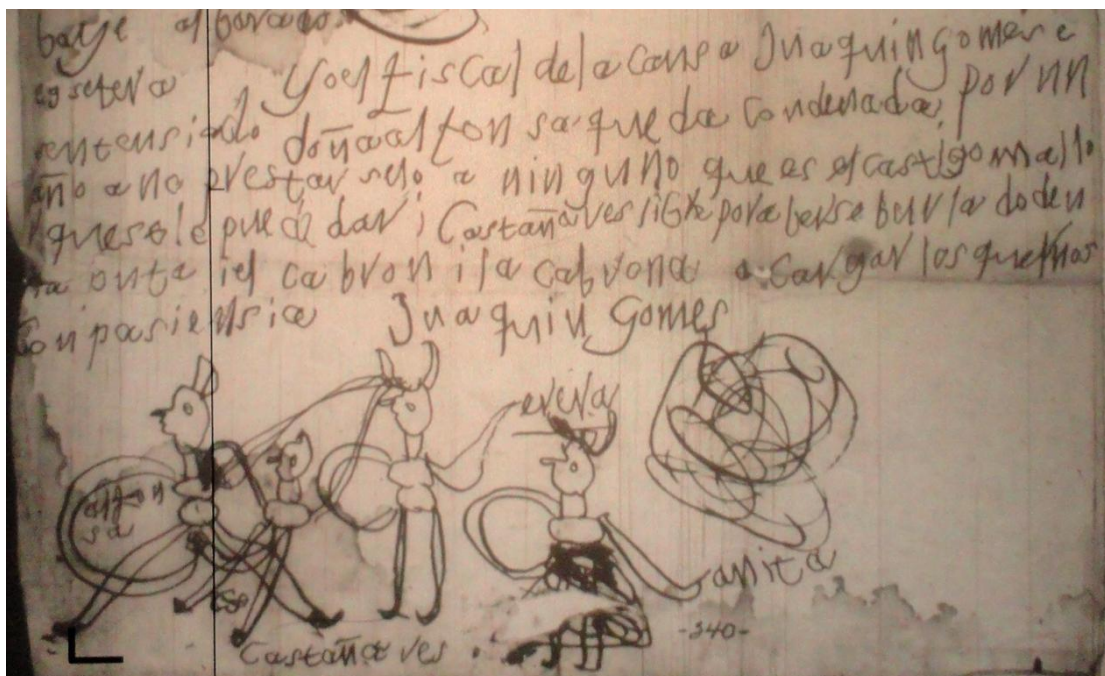 Yo el fiscal de la causa Juaquin gomes e
sentensiado doña alfonsa que da condenada, por un
año a no prestar selo a ninguno que es el castigo mallo
que se le puede dar i Castañaves por aberse burlado den
el cabron i la cabrona a cargar los quernos
Con pasiensia Juaquin Gomes
erera
alfon
sa
anita
ese
-340-
Castañaves